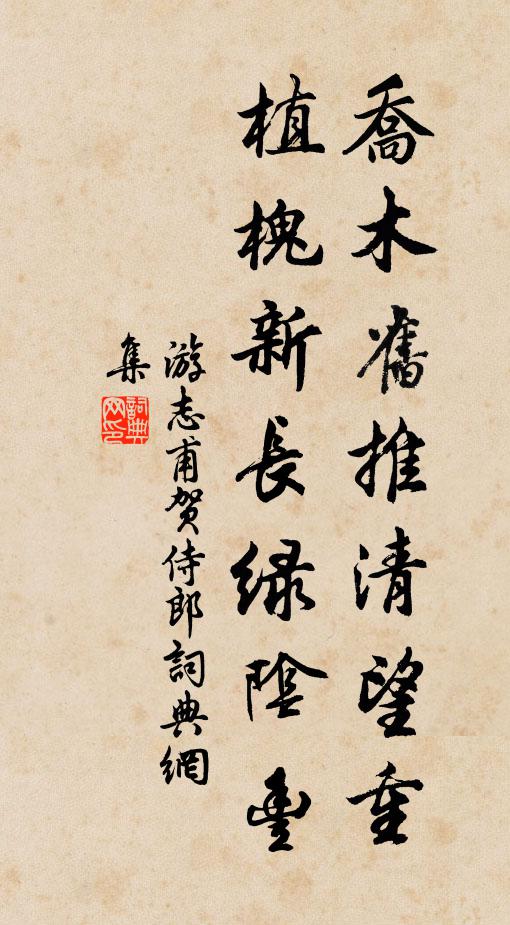 喬木舊推清望重
植槐新長綠陰豊
游志甫賀侍郎詞典網
集
詞典網印